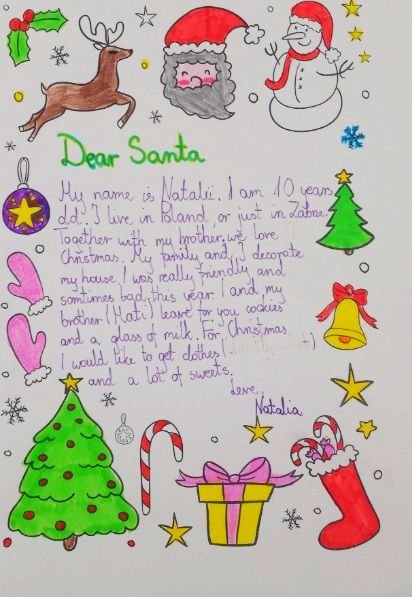 Dear Santa
My name is Natalii. I am 10 years
old. I live in Poland, or just in Zabrze.
Together with my brother we love
Christmas. My family and I decorate
my house. I was really friendly and
somtimes bad this year. I and my
brother (Mati) leave for you cookies
and a glass of milk. For Christmas
I would like to get clothes
and a lot of sweets.
Love,
Natalia